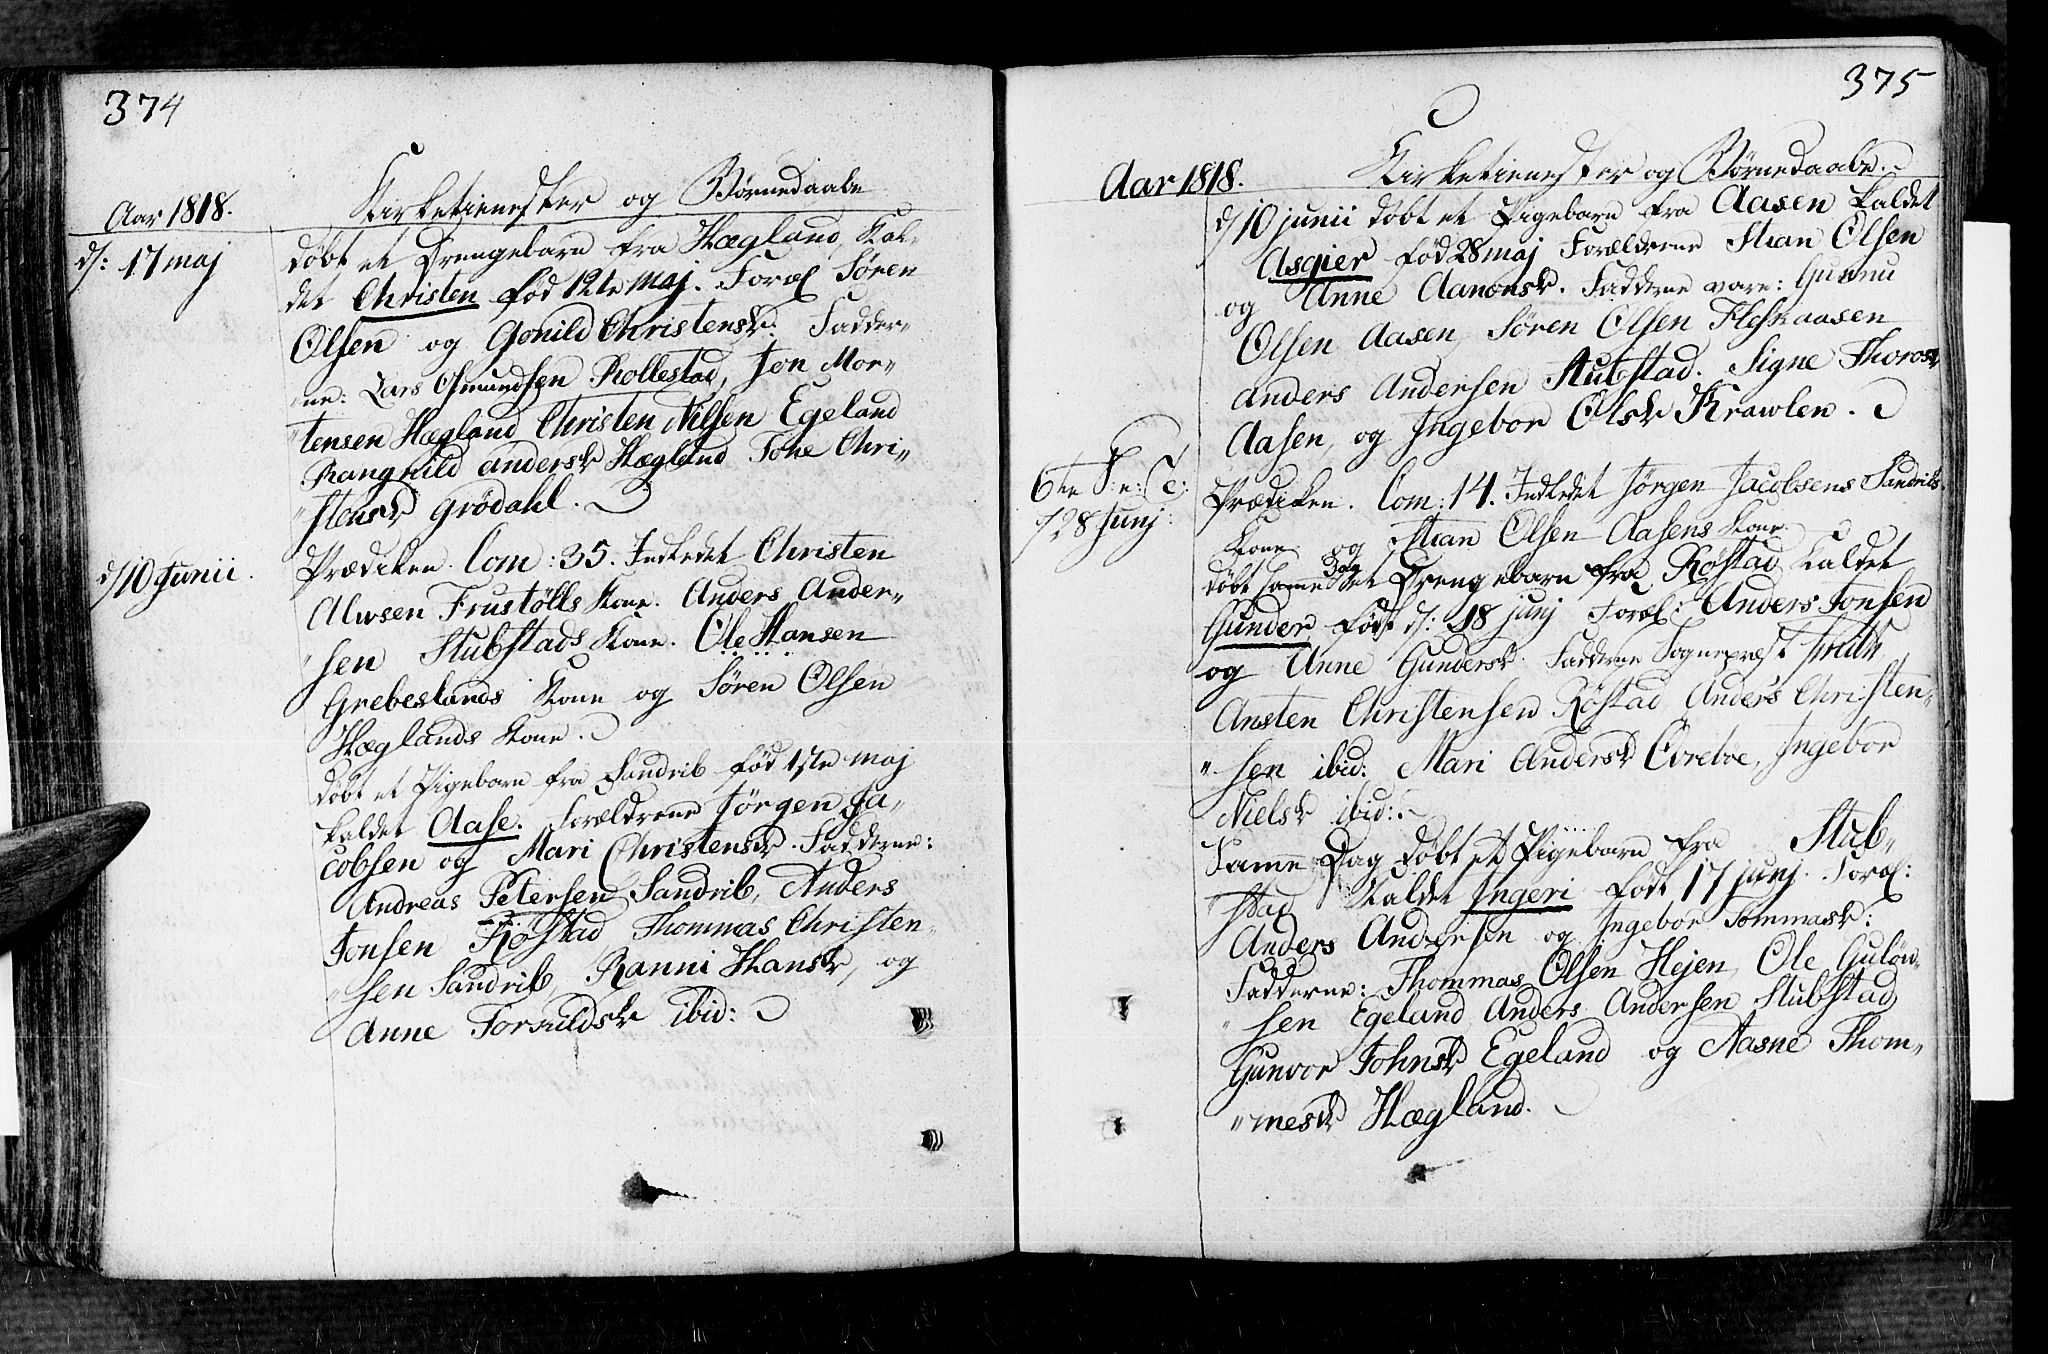 374
Kirketienester og Børnedaabe
Aar 1818.
d/: 17 maj
døbt et Drengebarn fra Hægland, Kal-
det Christen fød 12te Maj. Foræl Søren
Olsen og Gonild Christensd: Fadder-
ne: Lars Osmundsen Rollestad, Jon Mor-
tensen Hægland Christen Nilsen Egeland
Rangnild andersd Hægland Tone Chri-
stensd Grødahl.
d/10 Junii.
Prædiken. Com: 35. Indledet Christen
Alwsen Frustølls Kone. Anders Ander-
sen Stubstads Kone. Ole Hansen
Grebeslands Kone og Søren Olsen
Hæglands Kone.
døbt et Pigebarn fra Sandrib fød 1ste maj
kaldet Aase. Forældrene Jørgen Ja-
cobsen og Mari Christensd. Fadderne:
Andreas Petersen Sandrib, Anders
Jonsen Røstad Thommas Christen-
sen Sandrib, Ranni Hansd, og
Anne Torkildsd ibid:
375
Kirketienester og Børnedaabe.
Aar 1818.
d/10 junii døbt et Pigebarn fra Aasen kaldet
Asgier fød 28 maj Forældrene Stian Olsen
og Anne Aanonsd. Fadderne vare: Gunnu
Olsen Aasen Søren Olsen Fleskaasen
Anders Andersen Stubstad. Signe Thorosd
Aasen, og Ingebor Olsd Krawlen.
6te S: e: T:
d/28 Junj:
Prædiken. Com: 14. Indledet Jørgen Jacobsens Sandribs
Kone og Stian Olsen Aasens Kone
døbt same Dag et Drengebarn fra Røstad Kaldet
Gunder, født d/: 18 junj Foræl: Anders Jonsen
og Anne Gundersd. Fadderne Sognepræst
Ansten Christensen Røstad, Anders Christen-
sen ibid: Mari Andersd Øvreboe, Ingebor
Nielsd ibid:
Same Dag døbt et Pigebarn fra Stub-
stad Kaldet Ingeri født 17 junj. Foræl:
Anders Andersen og Ingebor Tommasd:
Fadderne: Thommas Olsen Hejen, Ole Guløw-
sen Egeland Anders Andersen Stubstad
Gunvor Johnsd Egeland og Aasne Thom-
mesd Hægland.